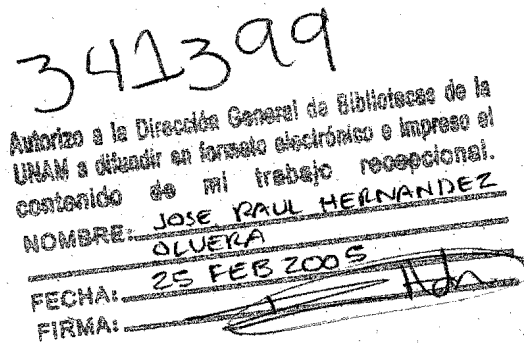 341399
Autorizo a la Dirección General de Bibliotecas de la
UNAM a difundir en formato electrónico e impreso el
contenido de mi trabajo recepcional.
NOMBRE: JOSE RAUL HERNANDEZ
OLVERA
FECHA: 25 FEB 2005
FIRMA: